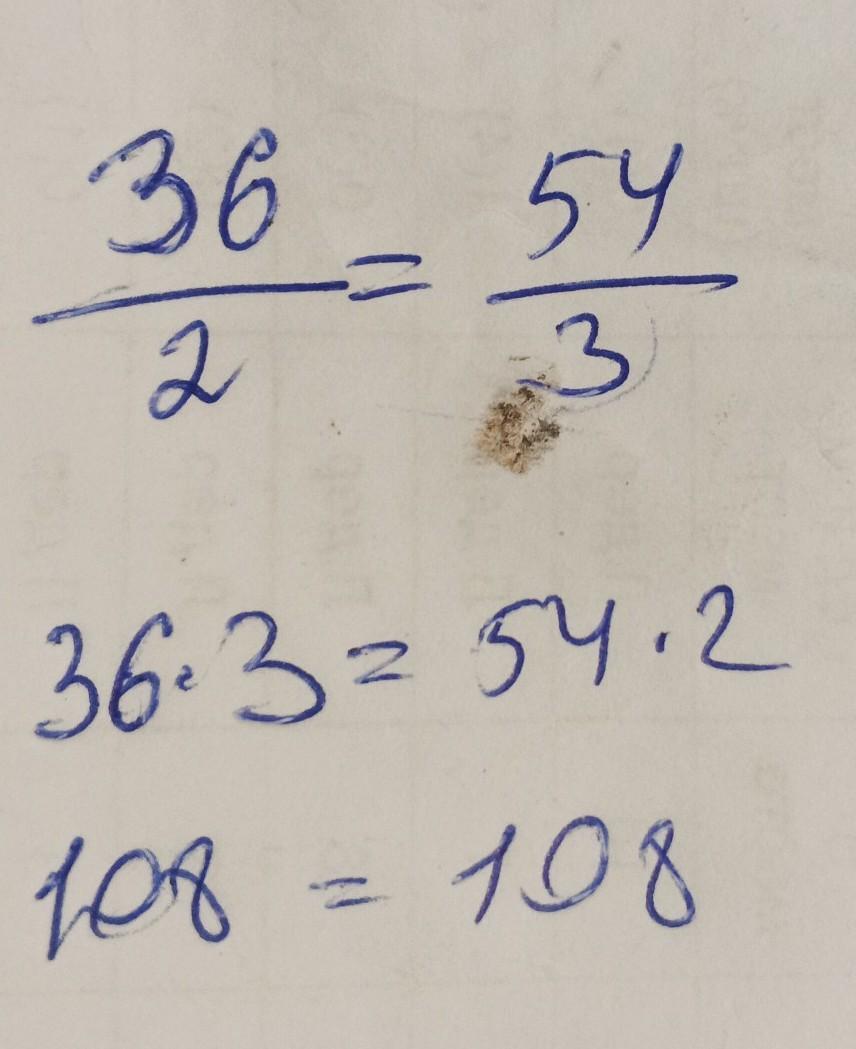 36/2 = 54/3
36·3 = 54·2
108 = 108